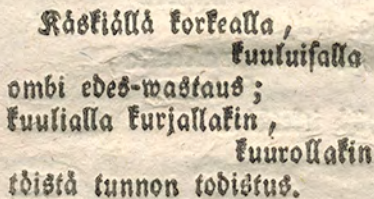 Käskiällä korkealla,
kuuluisalla
ombi edes-wastaus;
kuulialla kurjallakin,
kuurollakin
töistä tunnon todistus.